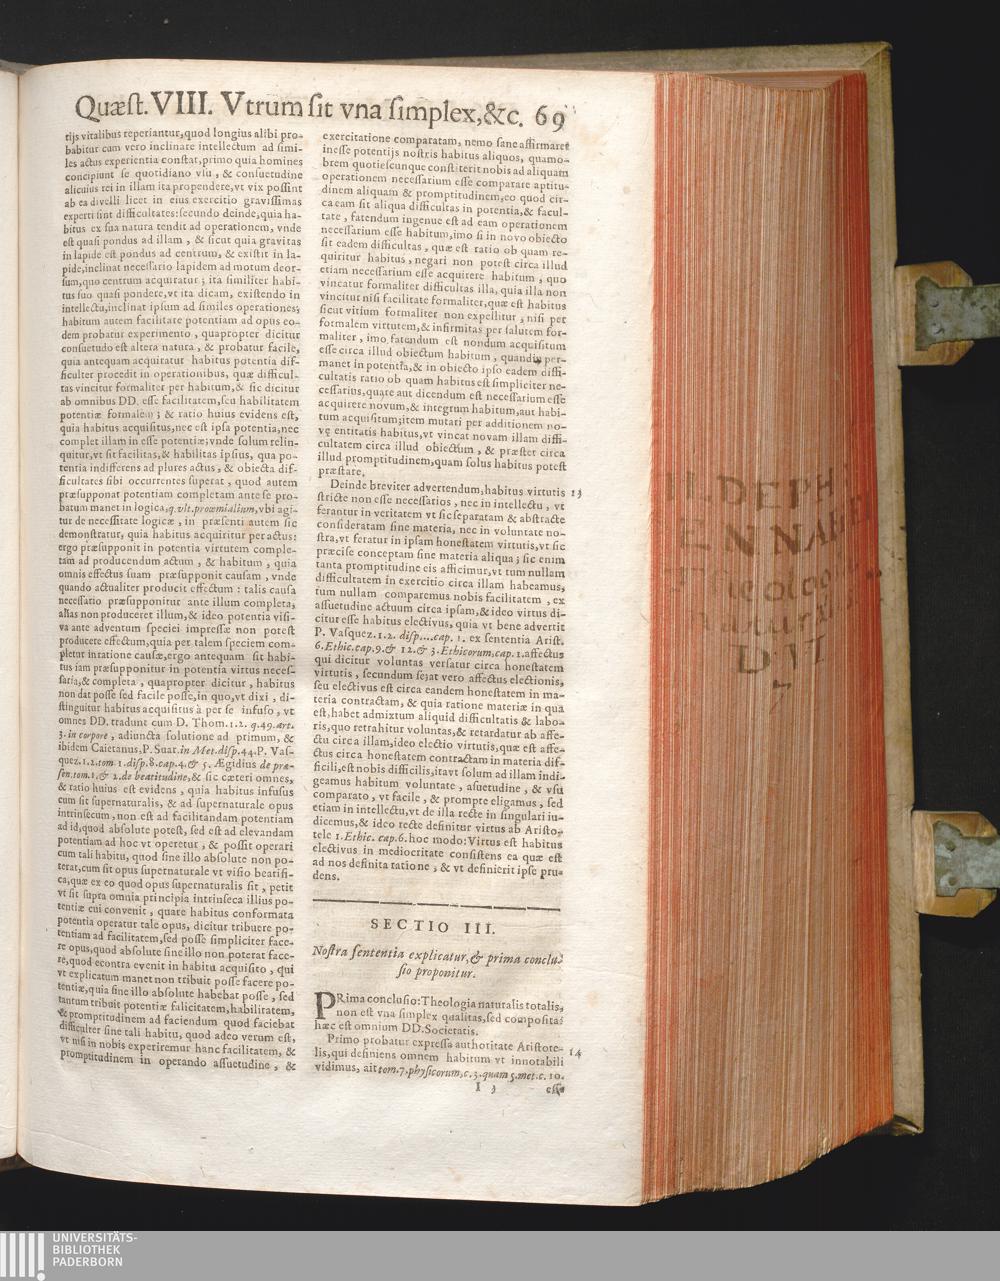 Quæst. VIII. Vtrum sit vna simplex, &c. 69
tijs vitalibus reperiantur, quod longius alibi pro-
babitur cum vero inclinare intellectum ad simi-
les actus experientia constat, primo quia homines
concipiunt se quotidiano vsu, & consuetudine
alicuius rei in illam ita propendere, vt vix possint
ab ea divelli licet in eius exercitio gravissimas
experti sint difficultates: secundo deinde, quia ha-
bitus ex sua natura tendit ad operationem, vnde
est quasi pondus ad illam, & sicut quia gravitas
in lapide est pondus ad centrum, & existit in la-
pide, inclinat necessario lapidem ad motum deor-
sum, quo centrum acquiratur; ita similiter habi-
tus suo quasi pondere, vt ita dicam, existendo in
intellectu, inclinat ipsum ad similes operationes;
habitum autem facilitate potentiam ad opus eo-
dem probatur experimento, quapropter dicitur
consuetudo est altera natura, & probatur facile,
quia antequam acquiratur habitus potentia dif-
ficulter procedit in operationibus, quæ difficul-
tas vincitur formaliter per habitum, & sic dicitur
ab omnibus DD. esse facilitatem, seu habilitatem
potentiæ formalem; & ratio huius evidens est,
quia habitus acquisitus, nec est ipsa potentia, nec
complet illam in esse potentiæ; vnde solum relin-
quitur, vt sit facilitas, & habilitas ipsius, qua po-
tentia indifferens ad plures actus, & obiecta dif-
ficultates sibi occurrentes superat, quod autem
præsupponat potentiam completam ante se pro-
batum manet in logica, q. vlt. proœmialium, vbi agi-
tur de necessitate logicæ, in præsenti autem sic
demonstratur, quia habitus acquiritur per actus:
ergo præsupponit in potentia virtutem comple-
tam ad producendum actum, & habitum, quia
omnis effectus suam præsupponit causam, vnde
quando actualiter producit effectum: talis causa
necessario præsupponitur ante illum completa,
alias non produceret illum, & ideo potentia visi-
va ante adventum speciei impressæ non potest
producere effectum, quia per talem speciem com-
pletur in ratione causæ, ergo antequam sit habi-
tus iam præsupponitur in potentia virtus neces-
saria, & completa, quapropter dicitur, habitus
non dat posse sed facile posse, in quo, vt dixi, di-
stinguitur habitus acquisitus à per se infuso, vt
omnes DD. tradunt cum D. Thom. 1.2. q.49. art.
3. in corpore, adiuncta solutione ad primum, &
ibidem Caietanus, P. Suar. in Met. disp. 44. P. Vas-
quez. 1.2. tom. 1. disp. 8. cap. 4. & 5. Ægidius de præ-
sen. tom. 1. & 2. de beatitudine, & sic cæteri omnes,
& ratio huius est evidens, quia habitus infusus
cum sit supernaturalis, & ad supernaturale opus
intrinsecum, non est ad facilitandam potentiam
ad id, quod absolute potest, sed est ad elevandam
potentiam ad hoc vt operetur, & possit operari
cum tali habitu, quod sine illo absolute non po-
terat, cum sit opus supernaturale vt visio beatifi-
ca, quæ ex eo quod opus supernaturalis sit, petit
vt sit supra omnia principia intrinseca illius po-
tentiæ cui convenit, quare habitus conformata
potentia operatur tale opus, dicitur tribuere po-
tentiam ad facilitatem, sed posse simpliciter face-
re opus, quod absolute sine illo non poterat face-
re, quod econtra evenit in habitu acquisito, qui
vt explicatum manet non tribuit posse facere po-
tentiæ, quia sine illo absolute habebat posse, sed
tantum tribuit potentiæ falicitatem, habilitatem,
& promptitudinem ad faciendum quod faciebat
difficulter sine tali habitu, quod adeo verum est,
vt nisi in nobis experiremur hanc facilitatem, &
promptitudinem in operando assuetudine, &
exercitatione comparatam, nemo sane affirmaret
inesse potentijs nostris habitus aliquos, quamo-
brem quotiescunque constiterit nobis ad aliquam
operationem necessarium esse comparare aptitu-
dinem aliquam & promptitudinem, eo quod cir-
ca eam sit aliqua difficultas in potentia, & facul-
tate, fatendum ingenue est ad eam operationem
necessarium esse habitum, imo si in novo obiecto
sit eadem difficultas, quæ est ratio ob quam re-
quiritur habitus, negari non potest circa illud
etiam necessarium esse acquirere habitum, quo
vincatur formaliter difficultas illa, quia illa non
vincitur nisi facilitate formaliter, quæ est habitus
sicut vitium formaliter non expellitur, nisi per
formalem virtutem, & infirmitas per salutem for-
maliter, imo fatendum est nondum acquisitum
esse circa illud obiectum habitum, quandiu per-
manet in potentia, & in obiecto ipso eadem diffi-
cultatis ratio ob quam habitus est simpliciter ne-
cessarius, quare aut dicendum est necessarium esse
acquirere novum, & integrum habitum, aut habi-
tum acquisitum; item mutari per additionem no-
vę entitatis habitus, vt vincat novam illam diffi-
cultatem circa illud obiectum, & præstet circa
illud promptitudinem, quam solus habitus potest
præstare.
Deinde breviter advertendum, habitus virtutis 13
stricte non esse necessarios, nec in intellectu, vt
ferantur in veritatem vt sic separatam & abstracte
consideratam sine materia, nec in voluntate no-
stra, vt feratur in ipsam honestatem virtutis, vt sic
præcise conceptam sine materia aliqua; sic enim
tanta promptitudine eis afficimur, vt tum nullam
difficultatem in exercitio circa illam habeamus,
tum nullam comparemus nobis facilitatem, ex
assuetudine actuum circa ipsam, & ideo virtus di-
citur esse habitus electivus, quia vt bene advertit
P. Vasquez. 1.2. disp....cap. 1. ex sententia Arist.
6. Ethic. cap. 9. & 12. & 3. Ethicorum, cap. 1. affectus
qui dicitur voluntas versatur circa honestatem
virtutis, secundum se; at vero affectus electionis,
seu electivus est circa eandem honestatem in ma-
teria contractam, & quia ratione materiæ in qua
est, habet admixtum aliquid difficultatis & labo-
ris, quo retrahitur voluntas, & retardatur ab affe-
ctu circa illam, ideo electio virtutis, quæ est affe-
ctus circa honestatem contractam in materia dif-
ficili, est nobis difficilis, itavt solum ad illam indi-
geamus habitum voluntate, assuetudine, & vsu
comparato, vt facile, & prompte eligamus, sed
etiam in intellectu, vt de illa recte in singulari iu-
dicemus, & ideo recte definitur virtus ab Aristo-
tele 1. Ethic. cap. 6. hoc modo: Virtus est habitus
electivus in mediocritate consistens ea quæ est
ad nos definita ratione, & vt definierit ipse pru-
dens.
SECTIO III.
Nostra sententia explicatur, & prima conclu-
sio proponitur.
PRima conclusio: Theologia naturalis totalis,
non est vna simplex qualitas, sed composita:
hæc est omnium DD. Societatis.
Primo probatur expressa authoritate Aristote- 14
lis, qui definiens omnem habitum vt innotabili
vidimus, ait tom. 7. physicorum, c. 3. quam 5. met. c. 10.
I 3 esse
UNIVERSITÄTS-
BIBLIOTHEK
PADERBORN